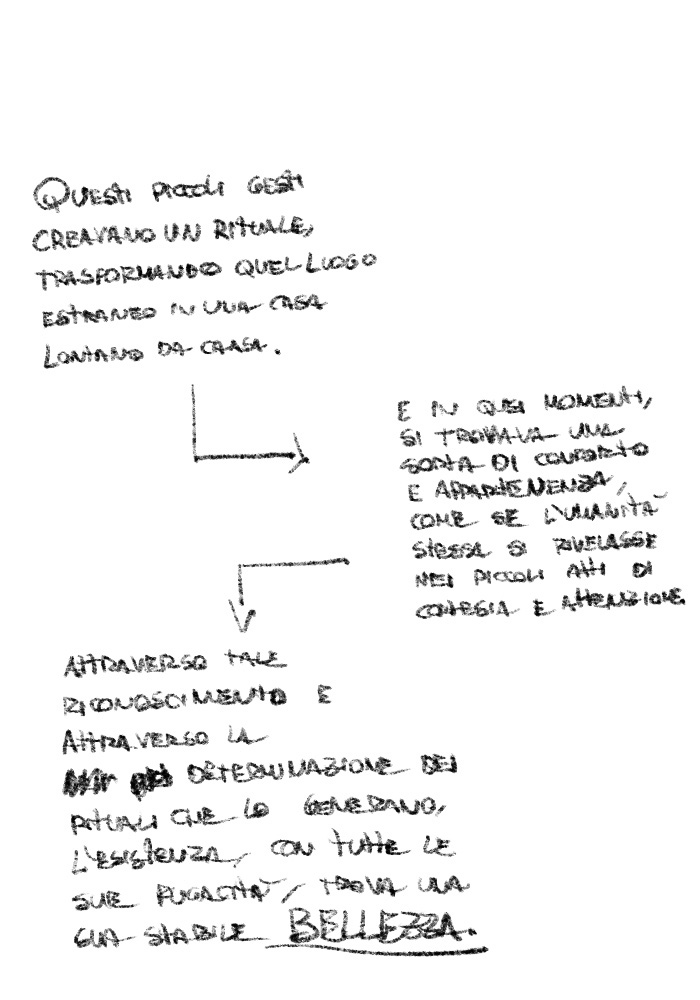 QUESTI PICCOLI GESTI
CREAVANO UN RITUALE,
TRASFORMANDO QUEL LUOGO
ESTRANEO IN UNA CASA
LONTANO DA CAASA.
E IN QUEI MOMENTI,
SI TROVAVA UNA
SORTA DI CONFORTO
E APPARTENENZA,
COME SE L'UMANITÀ
STESSA SI RIVELASSE
NEI PICCOLI ATTI DI
CORTESIA E ATTENZIONE.
ATTRAVERSO TALE
RICONOSCIMENTO E
ATTRAVERSO LA
DETERMINAZIONE DEI
RITUALI CHE LO GENERANO,
L'ESISTENZA, CON TUTTE LE
SUE FUGACITÀ, TROVA UNA
SUA STABILE BELLEZZA.